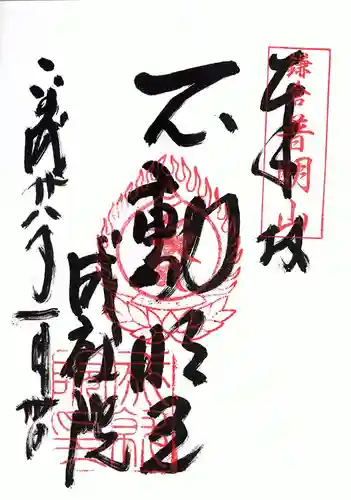 奉拝
鎌倉 普明山
不動明王
成就院
平成廿八年一月廿日